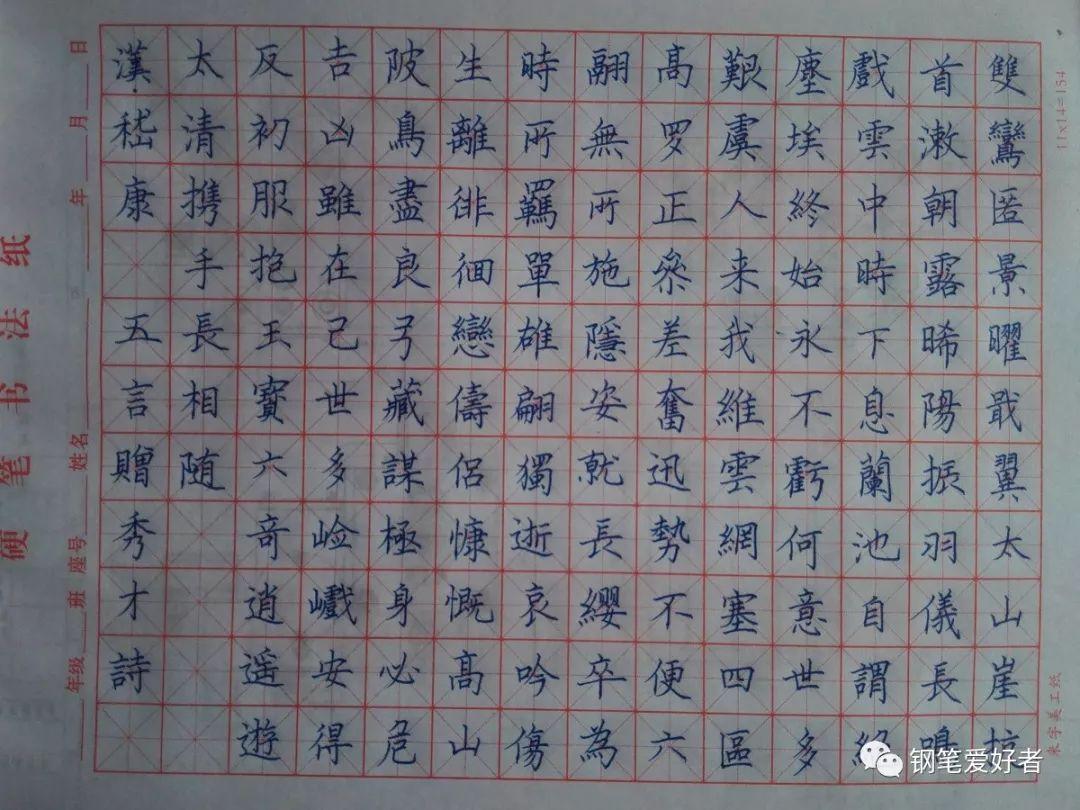 雙鸞匿景曜戢翼太山崖抗
首漱朝露晞陽振羽儀長鳴
戲雲中時下息蘭池自謂絕
塵埃終始永不虧何意世多
艱虞人来我維雲網塞四區
高罗正參差奮迅勢不便六
翮無所施隱姿就長纓卒為
時所羈單雄翩獨逝哀吟傷
生離徘徊戀儔侶慷慨高山
陂鳥盡良弓藏謀極身必危
吉凶雖在己世多嶮巇安得
反初服抱玉寶六奇逍遥遊
太清携手長相随
漢·嵇康 五言贈秀才詩
硬笔书法纸
年级 班 座号 姓名 年 月 日
11×14=154
米字美工纸
钢笔爱好者